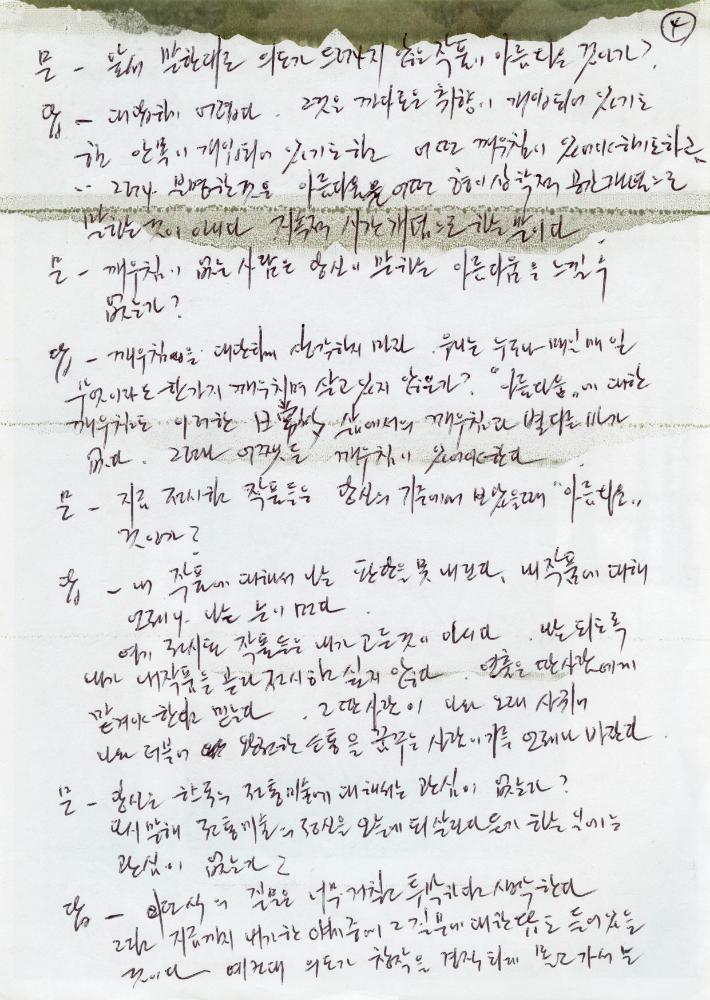 ④
문 - 앞서 말한대로 의도가 드러나지 않는 작품이 아름다운 것인가?
답 - 대답하기 어렵다. 그것은 까다로운 취향이 개입되어 있기도
하고 안목이 개입되어 있기도 하고 어떤 깨우침이 있어야 하기도 하고
... 그러나 분명한 것은 아름다움을 어떤 형이상학적 공간개념으로
말하는 것이 아니다 지속적 시간개념으로 하는 말이다
문 - 깨우침이 없는 사람은 당신이 말하는 아름다움을 느낄 수
없는가?
답 - 깨우침을 대단하게 생각하지 마라. 우리는 누구나 매일매일
무엇이라도 한가지 깨우치며 살고 있지 않은가? "아름다움"에 대한
깨우침도 이러한 삶에서의 깨우침과 별다른 바가
없다. 그러나 어쨌든 깨우침이 있어야 한다
문 - 지금 전시하고 작품들은 당신의 기준에서 보았을 때 "아름다운"
것인가?
답 - 내 작품에 대해서 나는 판단을 못 내린다. 내 작품에 대해
언제나 나는 눈이 멀다.
여기 전시된 작품들은 내가 고른 것이 아니다. 나는 되도록
내가 내 작품을 골라 전시하고 싶지 않다. 연출은 딴 사람에게
맡겨야 한다고 믿는다. 그 딴 사람이 나와 오래 사귀어
나와 더불어 완전한 소통을 꿈꾸는 사람이기를 언제나 바란다.
문 - 당신은 한국의 전통미술에 대해서는 관심이 없는가?
다시 말해 전통미술의 정신을 오늘에 되살린다든가 하는 일에는
관심이 없는가?
답 - 그런 식의 질문은 너무 거칠고 투박하다고 생각한다
그리고 지금까지 내가 한 얘기 중에 그 질문에 대한 답도 들어있는
것이다 예컨대 의도가 창작을 경직되게 몰고 가서는